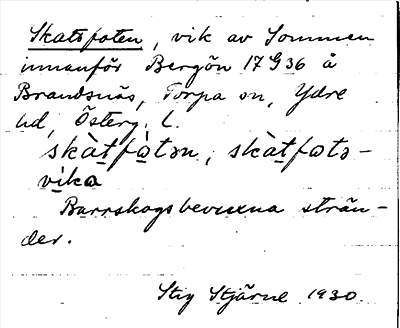 Skatsfoten, vik av Sommen
innanför Bergön 17 G 36 å
Brandsnäs, Torpa sn, Ydre
hd, Österg. L.
skàtfòtən, skàtfotə-
vika
Barrskogsbevuxna strän-
der.
Stig Stjärne 1930.